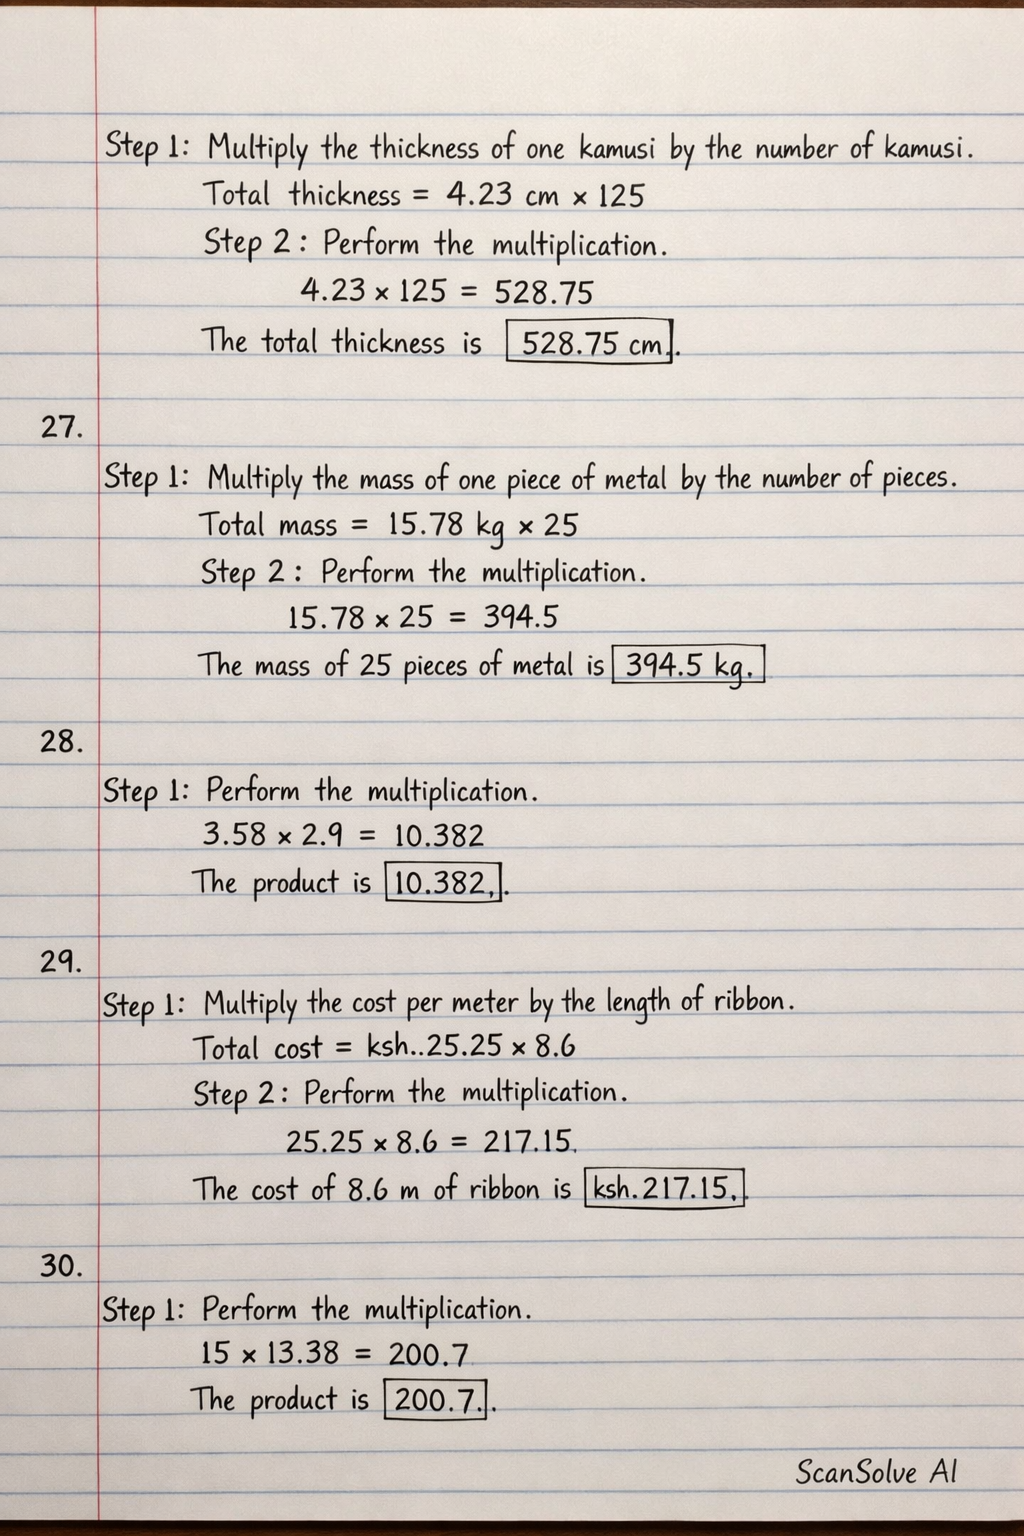 Step 1: Multiply the thickness of one kamusi by the number of kamusi.
Total thickness = 4.23 cm × 125
Step 2: Perform the multiplication.
4.23 × 125 = 528.75
The total thickness is 528.75 cm.
27.
Step 1: Multiply the mass of one piece of metal by the number of pieces.
Total mass = 15.78 kg × 25
Step 2: Perform the multiplication.
15.78 × 25 = 394.5
The mass of 25 pieces of metal is 394.5 kg.
28.
Step 1: Perform the multiplication.
3.58 × 2.9 = 10.382
The product is 10.382,.
29.
Step 1: Multiply the cost per meter by the length of ribbon.
Total cost = ksh..25.25 × 8.6
Step 2: Perform the multiplication.
25.25 × 8.6 = 217.15.
The cost of 8.6 m of ribbon is ksh.217.15,.
30.
Step 1: Perform the multiplication.
15 × 13.38 = 200.7
The product is 200.7..
ScanSolve AI